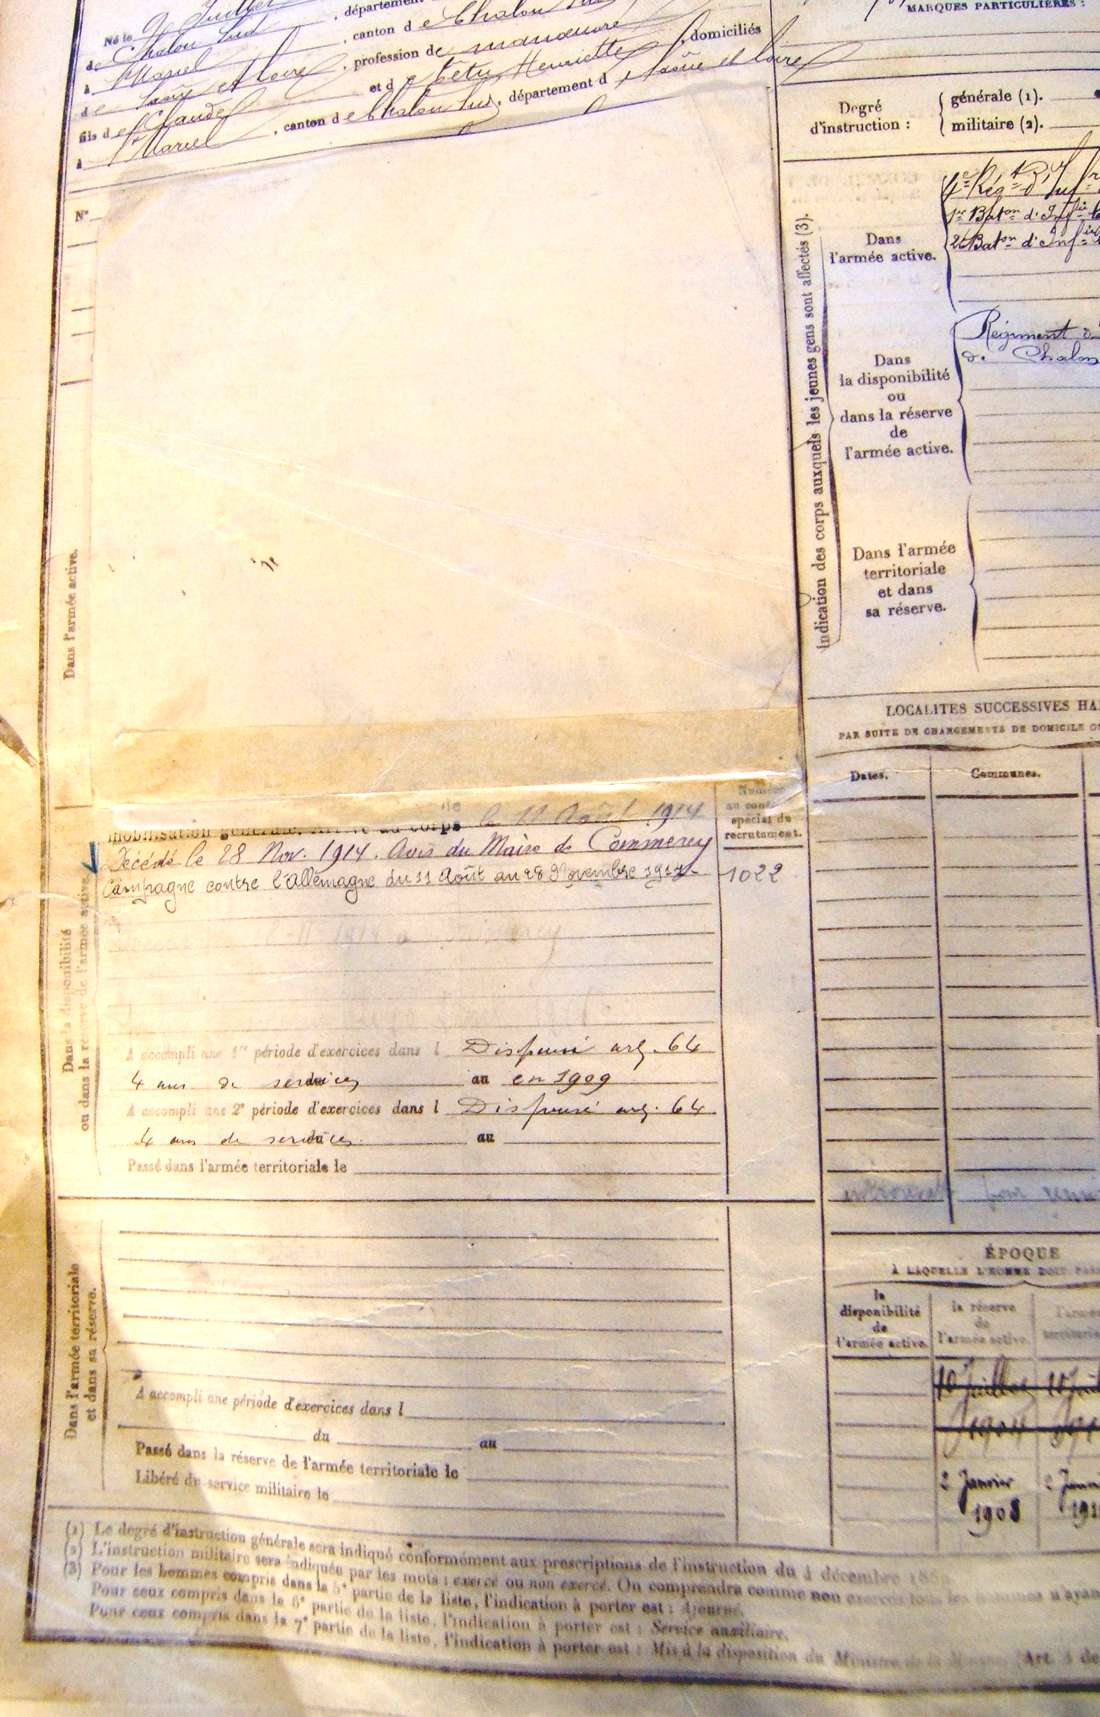 Né le 9 Juillet , département
de Chalon Sud , canton de Chalon Sud
à St Marcel , profession de manœuvre
de Saône et Loire
fils de Claude et de Henriette , domiciliés
à St Marcel , canton de Chalon Sud , département de Saône et Loire
MARQUES PARTICULIÈRES :
Degré d'instruction :
générale (1).
militaire (2).
N°
Dans l'armée active.
Indication des corps auxquels les jeunes gens sont affectés (3).
Dans
l'armée active.
1er Baton d'Infie
2e Baton d'Infie
Dans
la disponibilité
ou
dans la réserve
de
l'armée active.
Régiment
de Chalon
Dans l'armée
territoriale
et dans
sa réserve.
LOCALITÉS SUCCESSIVES HA
PAR SUITE DE CHANGEMENTS DE DOMICILE O
Dates.
Communes.
Dans la disponibilité
ou dans la réserve de l'armée active.
Numéro
au cont
spécial du
recrutement.
1022
mobilisation générale. au corps le 11 Août 1914
Décédé le 28 Nov. 1914. Avis du Maire de Commercy
Campagne contre l'Allemagne du 11 Août au 28 Novembre 1914
A accompli une 1re période d'exercices dans l Dispensé arg. 64
4 ans de services au en 1909
A accompli une 2e période d'exercices dans l Dispensé arg. 64
4 ans de services au
Passé dans l'armée territoriale le
pour
ÉPOQUE
À LAQUELLE L'HOMME DOIT PAS
la
disponibilité
de
l'armée active.
la réserve
de
l'armée active.
l'armé
territoria
10 Juillet
1904
2 Janvier
1908
Dans l'armée territoriale
et dans sa réserve.
A accompli une période d'exercices dans l
du au
Passé dans la réserve de l'armée territoriale le
Libéré du service militaire le
(1) Le degré d'instruction générale sera indiqué conformément aux prescriptions de l'instruction du 4 décembre
(2) L'instruction militaire sera indiquée par les mots : exercé ou non exercé. On comprendra comme non exercés tous les hommes n'ayan
(3) Pour les hommes compris dans la 5e partie de la liste, l'indication à porter est : Ajourné.
Pour ceux compris dans la 6e partie de la liste, l'indication à porter est : Service auxiliaire.
Pour ceux compris dans la 7e partie de la liste, l'indication à porter est : Mis à la disposition du Ministre de la Marine (Art. 4 de